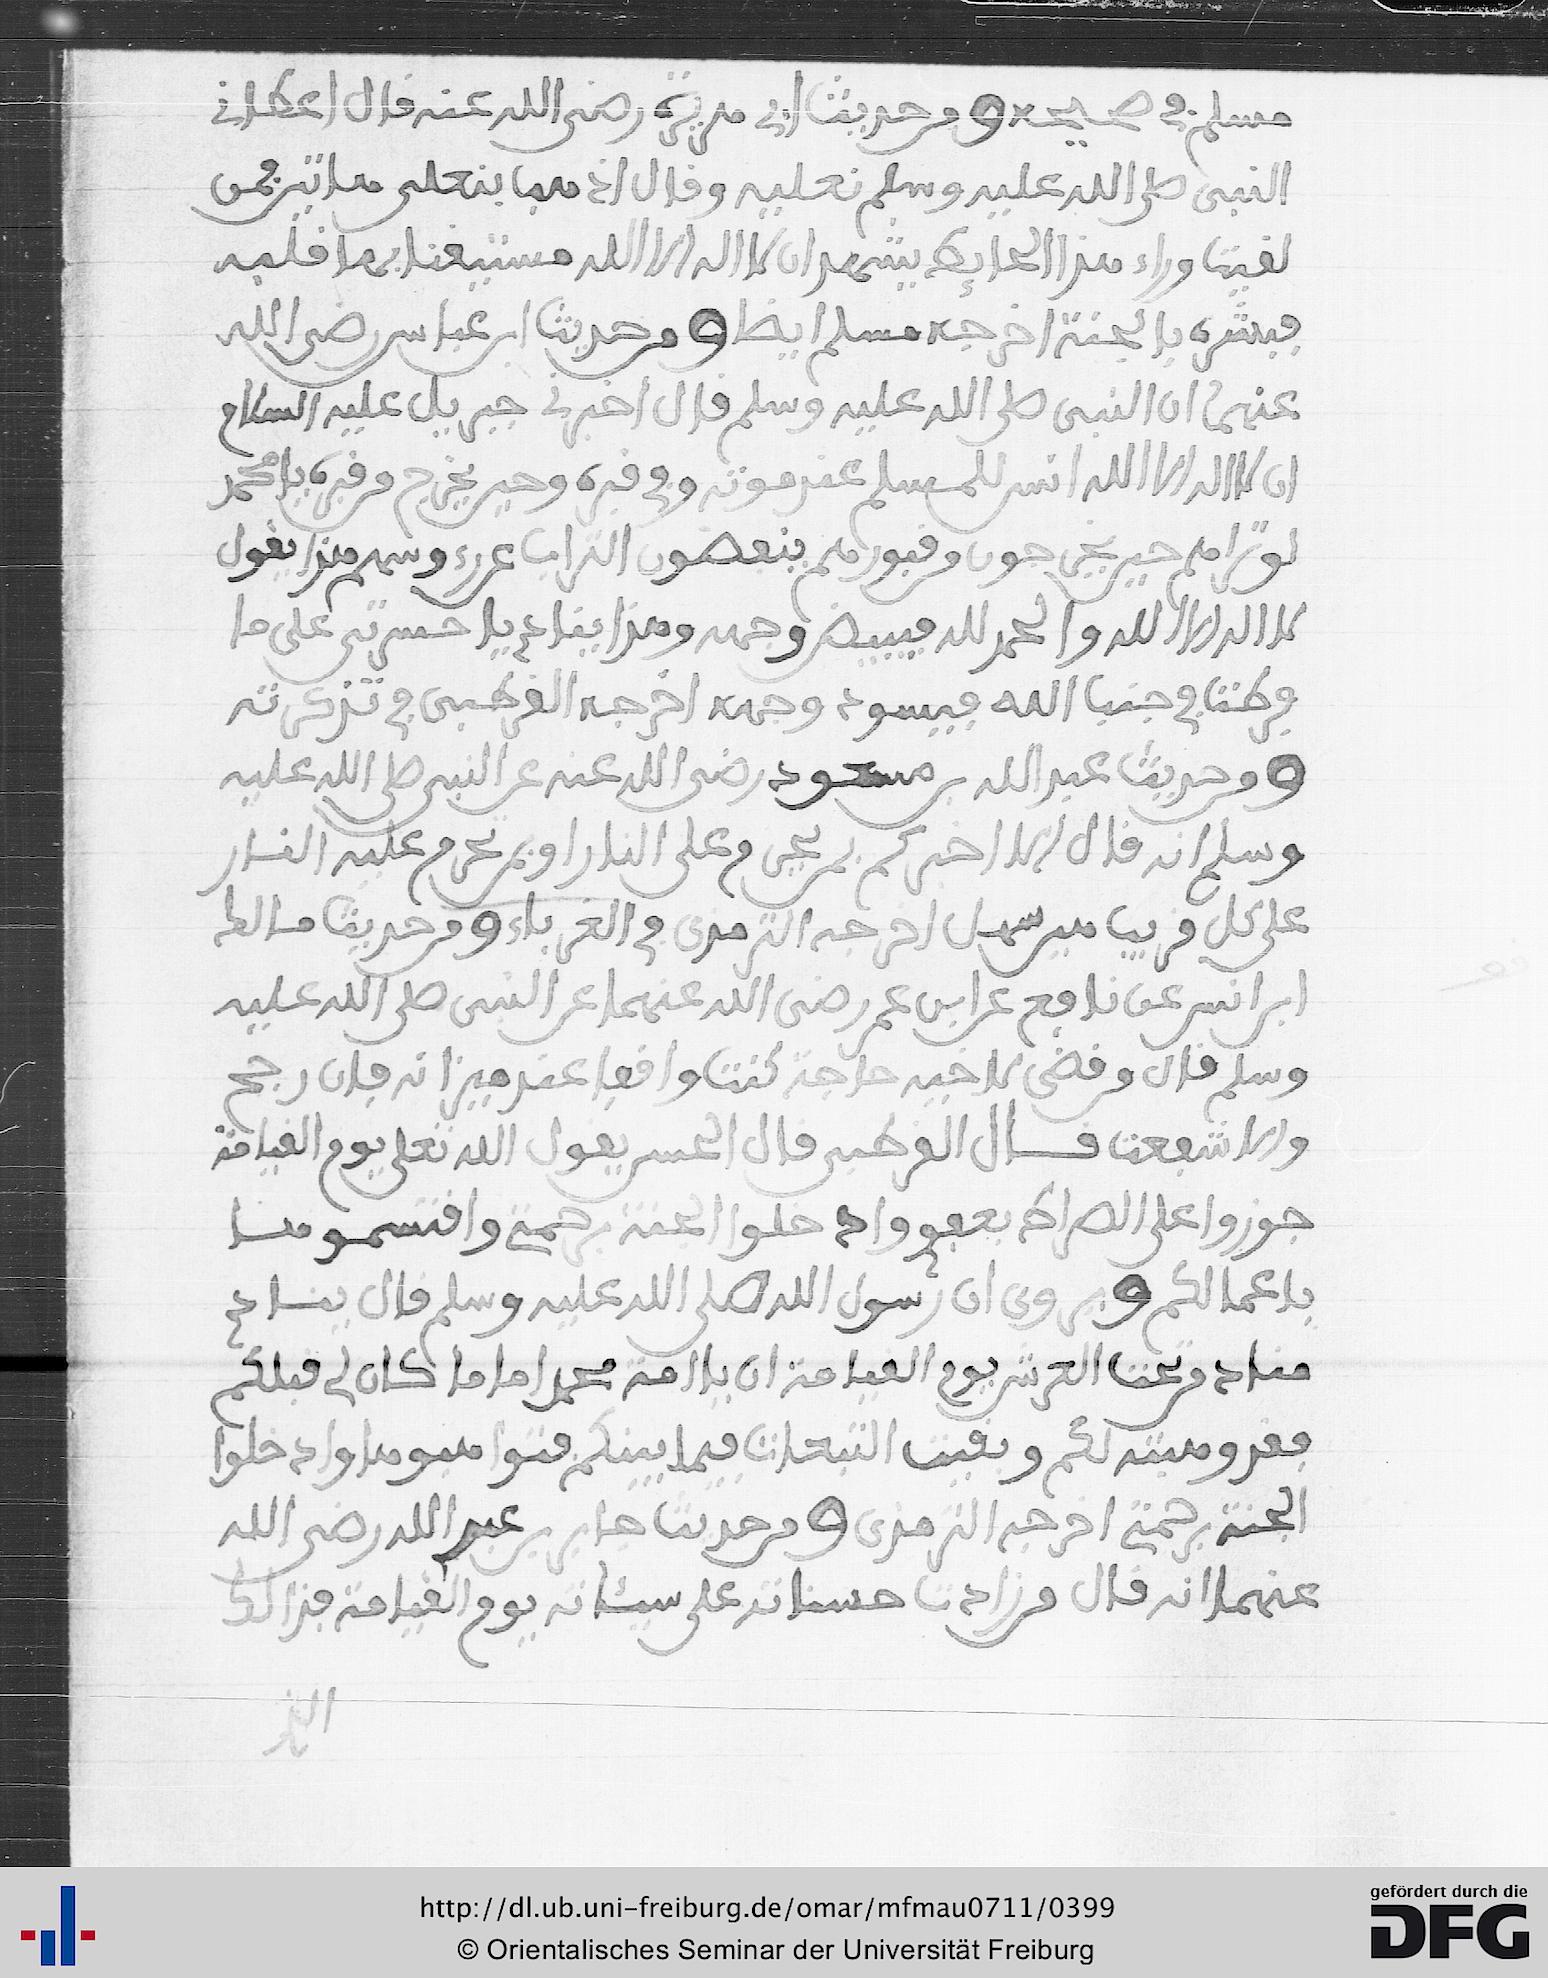 مسلم في صحيحه ومن حديث ابي هريرة رضى الله عنه فال اعطاني
النبى صلى الله عليه وسلم نعليه وفال اذهب بنعلى هاتين فمن
لفيت وراء هذا الحايط يشهد ان لا اله الا الله مستيفنا بها فلبه
فبشره بالجنة اخرجه مسلم ايضا ومن حديث ابن عباس رضى الله
عنهما ان النبى صلى الله عليه وسلم فال اخبرني جبريل عليه السلام
ان لا اله الا الله انس للمسلم عند موته وفي فبره وحين يخرج من فبره يا محمد
لو تراهم حين يخرجون من فبورهم ينفضون التراب عن رءوسهم هذا يفول
لا اله الا الله والحمد لله فيبيض وجهه وهذا ينادي يا حسرتى على ما
فرطت في جنب الله فيسود وجهه اخرجه الفرطبى في تذكرته
ومن حديث عبد الله بن مسعود رضى الله عنه عن النبى صلى الله عليه
وسلم انه فال الا اخبركم بمن يحرم على النار او بمن تحرم عليه النار
على كل فريب هين سهل اخرجه الترمذى في الغرباء ومن حديث مالك
ابن انس عن نافع عن ابن عمر رضى الله عنهما عن النبى صلى الله عليه
وسلم فال من فضى لاخيه حاجة كنت وافعا عند ميزانه فان رجح
والا شفعت فال الفرطبى فال الحسن يفول الله تعلى يوم الفيامة
جوزوا على الصراط بعفوي وادخلوا الجنة برحمتي وافتسموها
باعمالكم ويروى ان رسول الله صلى الله عليه وسلم فال ينادي
مناد من تحت العرش يوم الفيامة ان يا امة محمد اما ما كان لي فبلكم
ففد وهبته لكم وبفيت التبعات فيما بينكم فتواهبوها وادخلوا
الجنة برحمتي اخرجه الترمذى ومن حديث جابر بن عبد الله رضى الله
عنهما انه فال من زادت حسناته على سيئاته يوم الفيامة فذالك
الذ
http://dl.ub.uni-freiburg.de/omar/mfmau0711/0399
© Orientalisches Seminar der Universität Freiburg
gefördert durch die
DFG